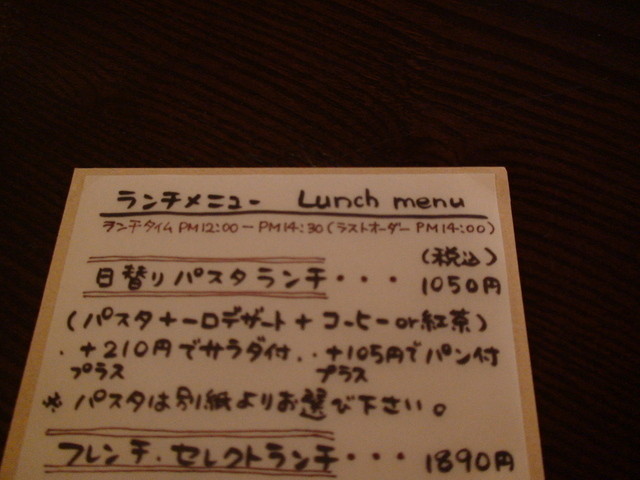 ランチメニュー Lunch menu
ランチタイム PM12:00-PM14:30(ラストオーダー PM14:00)
(税込)
日替りパスタランチ・・・ 1050円
(パスタ+一口デザート+コーヒーor紅茶)
・+210円でサラダ付・・+105円でパン付
プラス プラス
※ パスタは別紙よりお選び下さい。
フレンチ・セレクトランチ・・・ 1890円